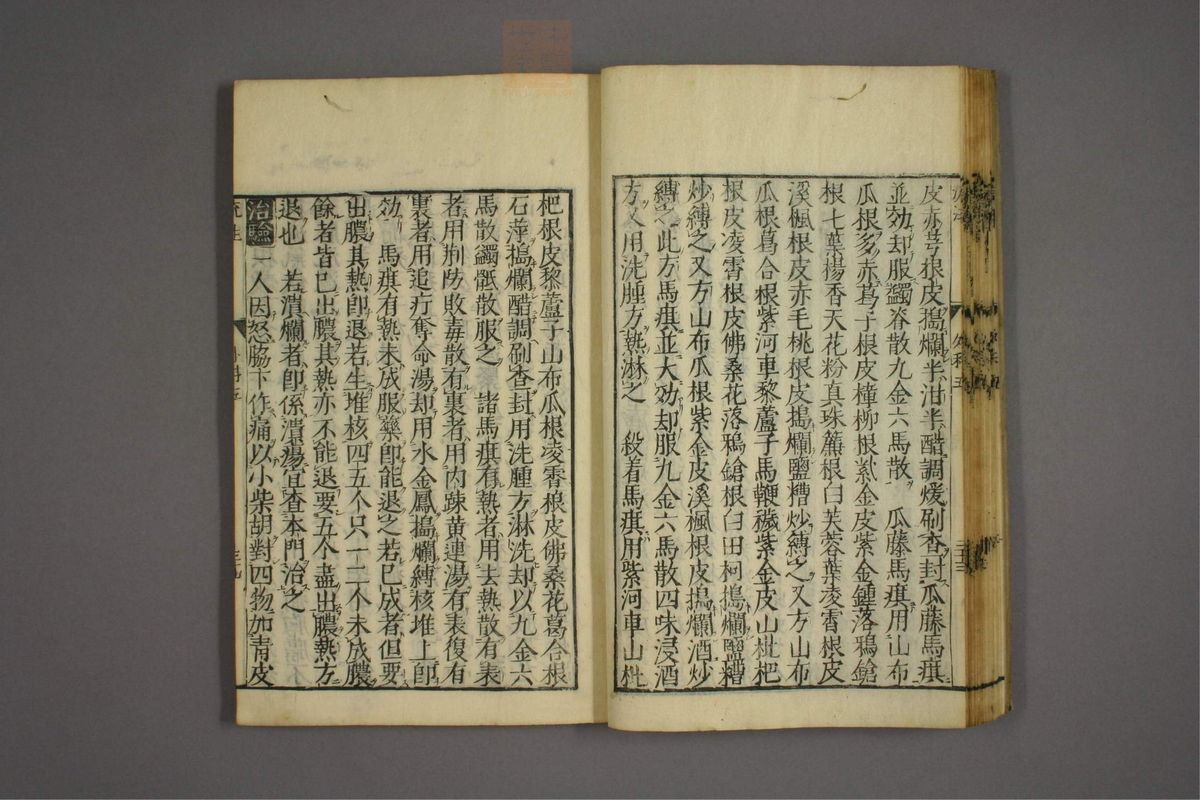 皮赤葛根皮搗爛半泔半醋調煖刷杳封瓜藤馬㾵
並効却服蠲脊散九金六馬散　瓜藤馬㾵用山布
瓜根多赤葛子根皮樟柳根紫金皮紫金鍾落鴉鎗
根七葉楊香天花粉真珠簾根白芙蓉葉凌霄根皮
溪楓根皮赤毛桃根皮搗爛鹽糟炒縛之又方山布
瓜根葛合根紫河車黎蘆子馬鞭穢紫金皮山枇杷
根皮凌霄根皮佛桑花落鴉鎗根白田柯搗爛鹽糟
炒縛之又方山布瓜根紫金皮溪楓根皮搗爛酒炒
縛之此方馬㾵並大効却服九金六馬散四味浸酒
方又用洗腫方熱淋之　殺着馬㾵用紫河車山枇
杷根皮黎蘆子山布瓜根凌霄根皮佛桑花葛合根
石萍搗爛醋調刷杳封用洗腫方淋洗却以九金六
馬散蠲骶散服之　諸馬㾵有熱者用去熱散有表
者用荆防敗毒散有裏者用内踈黄連湯有表復有
裏者用追疔奪命湯却用水金鳳搗爛縛核堆上即
効　馬㾵有熱未成服藥即能退之若已成者但要
出膿其熱即退若生堆核四五个只一二个未成膿
餘者皆已出膿其熱亦不能退要五个盡出膿熱方
退也　若潰爛者即係潰瘍宜查本門治之
治驗　一人因怒脇下作痛以小柴胡對四物加青皮